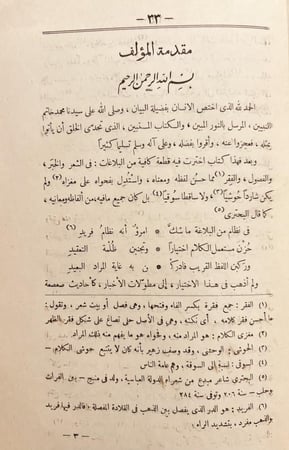 — ٣٣ —
مقدمة المؤلف
بسم الله الرحمن الرحيم
الحمد لله الذى اختص الانسان بفضيلة البيان، وصلى الله على سيدنا محمد خاتم
النبيين، المرسل بالنور المبين، والكتاب المستبين، الذى تحدى الخلق أن يأتوا
بمثله، فعجزوا عنه، وأقروا بفضله، وعلى آله وسلم تسليما كثيراً
وبعد فهذا كتاب اخترت فيه قطعة كافية من البلاغات : فى الشعر والخبر،
والفصول، والفقر (١) مما حسن لفظه ومعناه، واستدل بفحواه على مغزاه (٢) ولم
يكن شارداً حوشياً (٣) ولا ساقطا سوقياً (٤) بل كان جميع مافيه، من ألفاظه ومعانيه،
كما قال البحترى (٥)
فى نظام من البلاغة ماشك * امرؤ أنه نظام فريد (٦)
حزن مستعمل الكلام اختياراً * وتجنبن ظلمة التعقيد
وركبن اللفظ القريب فأدرك * ن به غاية المراد البعيد
ولم أذهب فى هذا الاختيار، إلى مطولات الأخبار، كأحاديث صعصعة
(١) الفقر : جمع فقرة بكسر الفاء وفتحها، وهى فصل أو بيت شعر، وتقول :
ما أحسن فقر كلامه، أى نكته، وهى فى الأصل حلى تصاغ على شكل فقر الظهر
(٢) مغزى الكلام : هو المراد منه، وفحواه هو ما يفهم منه ذلك المراد
(٣) الحوشى : الوحشى، وقد وصف زهير بأنه كان لا يتتبع حوشى الكلام
(٤) السوقى : نسبة إلى السوقة، وهم عامة الناس
(٥) البحترى شاعر مبدع من شعراء الدولة العباسية، ولد فى منبج - بين الفرات
وحلب - سنة ٢٠٦ وتوفى سنة ٢٨٤
(٦) الفريد : هو الدر الذى يفصل بين الذهب فى القلادة المفصلة، فالدر فيها فريد
والذهب مفرد، بتشديد الراء
— ٣ —